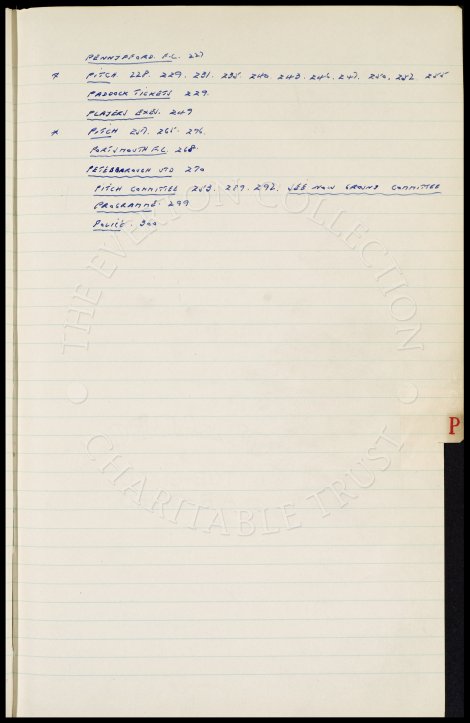 PENNYFFORD. F.C. 227
* PITCH 228. 229. 231. 235. 240. 243. 246. 247. 250, 252. 255
PADDOCK TICKETS 229.
PLAYERS EXES. 249
* PITCH 257. 265. 276.
PORTSMOUTH F.C. 268.
PETERBOROUGH UTD 270
PITCH COMMITTEE 283. 289. 292. SEE NOW GROUND COMMITTEE
PROGRAMME. 299
POLICE. 300
P
THE EVERTON COLLECTION
CHARITABLE TRUST